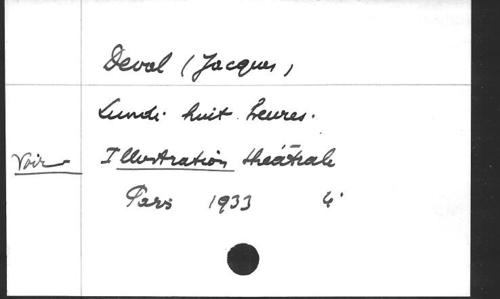 Deval (Jacques)
Lundi huit heures.
Voir Illustration théâtrale
Paris 1933 4°